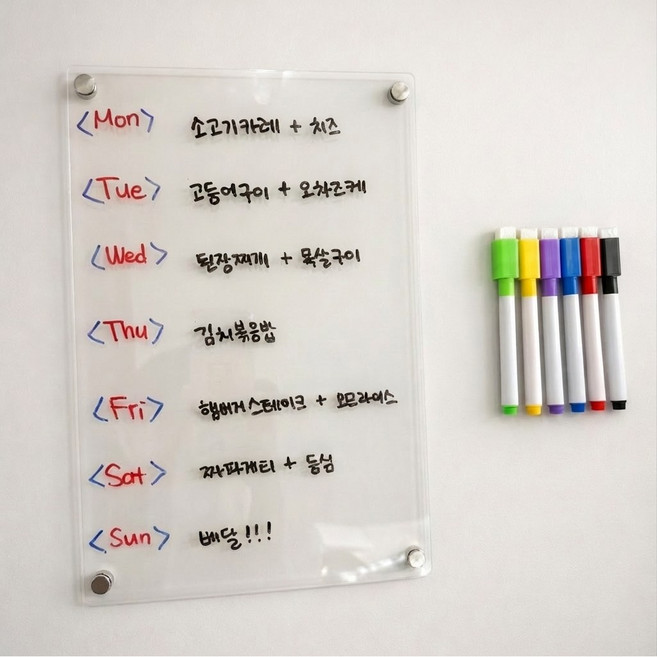 <Mon> 소고기카레 + 치즈
<Tue> 고등어구이 + 오차즈케
<Wed> 된장찌개 + 목살구이
<Thu> 김치볶음밥
<Fri> 햄버거스테이크 + 오므라이스
<Sat> 짜파게티 + 등심
<Sun> 배달!!!